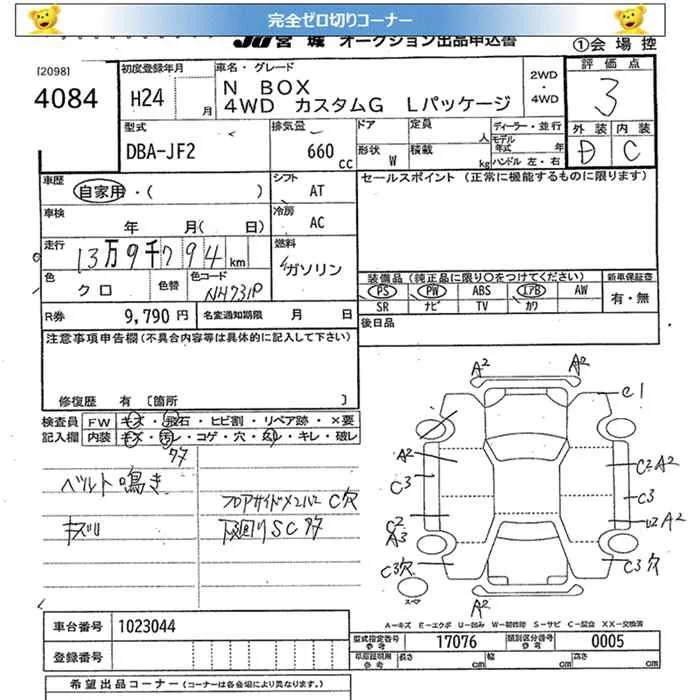 完全ゼロ切りコーナー
JU宮城 オークション出品申込書 ①会場控
[2098]
4084
初度登録年月
H24 月
車名・グレード
N BOX
4WD カスタムG Lパッケージ
2WD
・
4WD
評価点
3
型式
DBA-JF2
排気量
660 cc
ドア
形状 W
定員 人
積載 kg
ディーラー・並行
モデル年式 年
ハンドル 左・右
外装 内装
D C
車歴
自家用・( )
シフト
AT
セールスポイント (正常に機能するものに限ります)
車検
年 月( 日)
冷房
AC
走行
13万9千794 km
燃料
ガソリン
色
クロ
色替
色コード
NH731P
装備品 (純正品に限り○をつけてください)
新車保証書
PS PW ABS エアB AW
SR ナビ TV カワ
有・無
R券 9,790 円
名変通知期限 月 日
後日品
注意事項申告欄 (不具合内容等は具体的に記入して下さい)
修復歴 有 [箇所 ]
検査員
記入欄
FW キズ・飛石・ヒビ割・リペア跡・×要
内装 キズ・汚レ・コゲ・穴・ムレ・キレ・破レ
ベルト鳴き
フロアサイドメンバー C穴
キズリ
下廻りSC
A2 A2
C1
A2
C3
C2A2
C3
C2
A3
A2
C3穴
C3穴
A2
スペア
A−キズ E−エクボ U−凹み W−補修跡 S−サビ C−腐食 XX−交換済
車台番号 1023044
登録番号
型式指定番号
参考
17076
類別区分番号
参考
0005
車庫証明用
参考
長さ cm
幅 cm
高さ cm
希望出品コーナー (コーナーは各会場により異なります。)